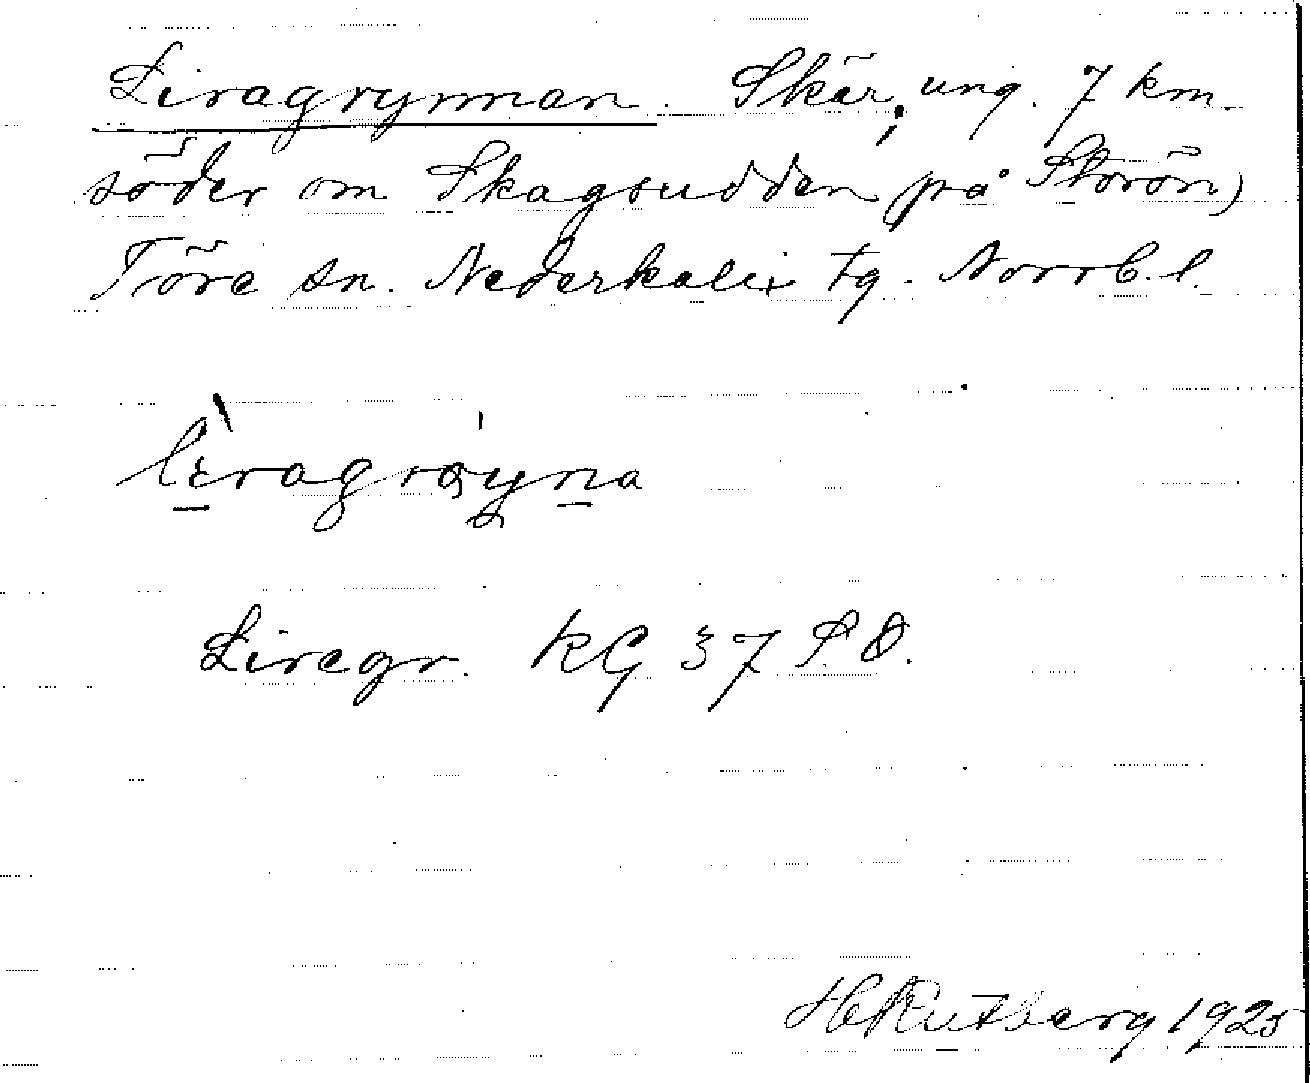 Liragrynnan. Skär, ung. 7 km.
söder om Skagsudden på Storön,
Töre sn. Nederkalix tg. Norrb. l.
Liregr. KG 37 S.O.
H Rutberg 1925